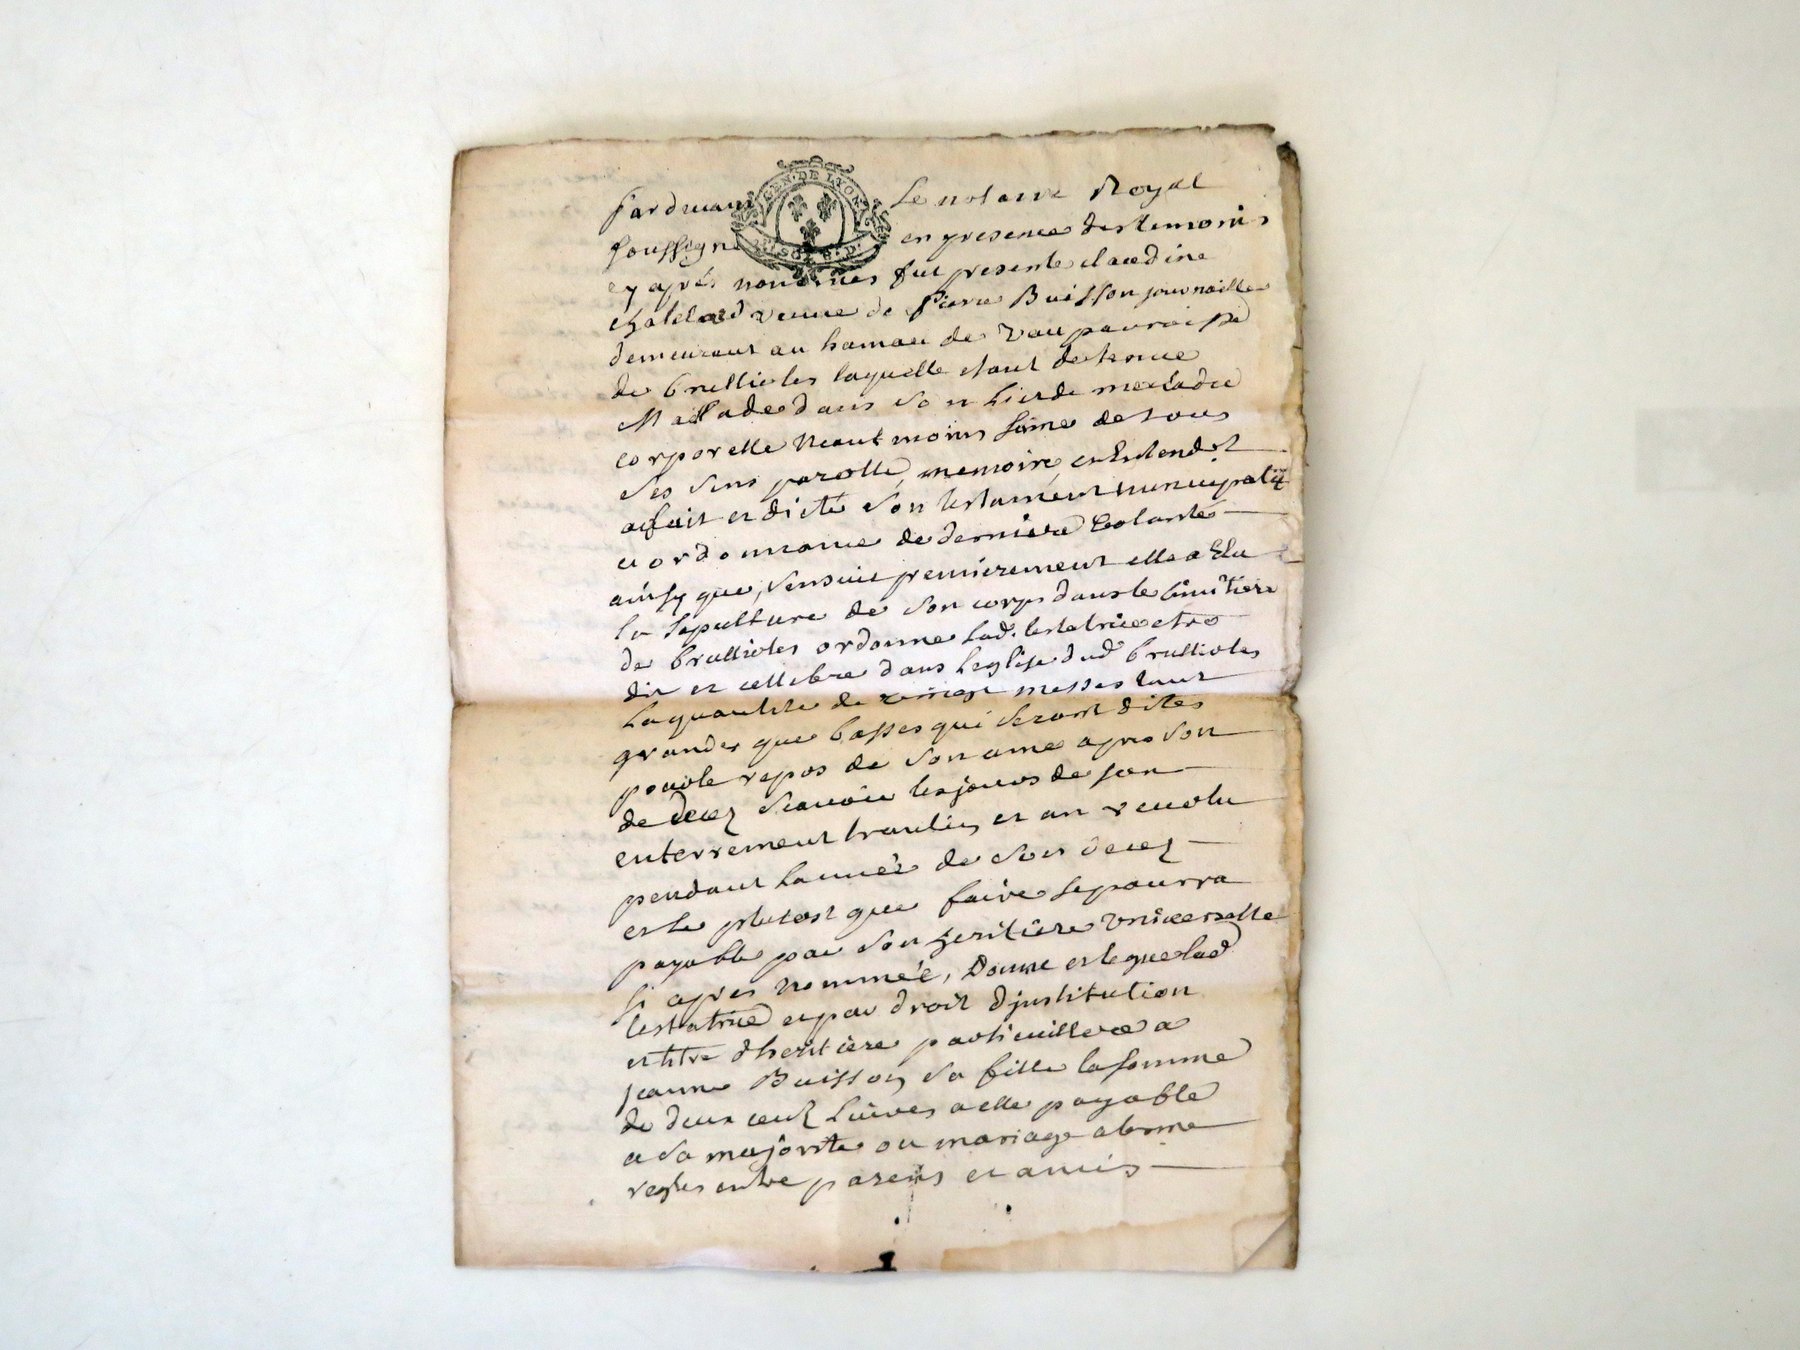 GEN. DE LYON
SOLS. D.
Pardevant Le notaire Royal
soussigné en presence des temoins
cy après nommes fut presente claudine
veuve de Pierre Buisson journaillier
demeurant au hamau de Vau parroisse
de brullioles laquelle etant detenue
Mallade dans son lit de maladie
corporelle neantmoins saine de tous
ses sens parolle, memoire, et Entendt
a fait et dicté son testament nuncupatif
et ordonnance de derniere volonté
ainsy que sensuit premierement elle a Elu
la sepulture de son corps dans le cimitiere
de brullioles ordonne lad. testatrice etre
dit et cellebre dans leglise dud brullioles
la quantite de vingt messes tant
grandes que basses qui seront dites
pour le repos de son ame apres son
de decez scavoir les jours de son
enterrement trantin et an revolu
pendant lannée de son decez
et le plutost que faire se pourra
payable par son heritiere universelle
si apres nommée, Donne et legue lad
testatrice et par droit d'institution
et titre d'heritiere particuillere a
jeanne Buisson sa fille la somme
de deux cent livres a elle payable
a sa majorite ou mariage a terme
regles entre parens et amis